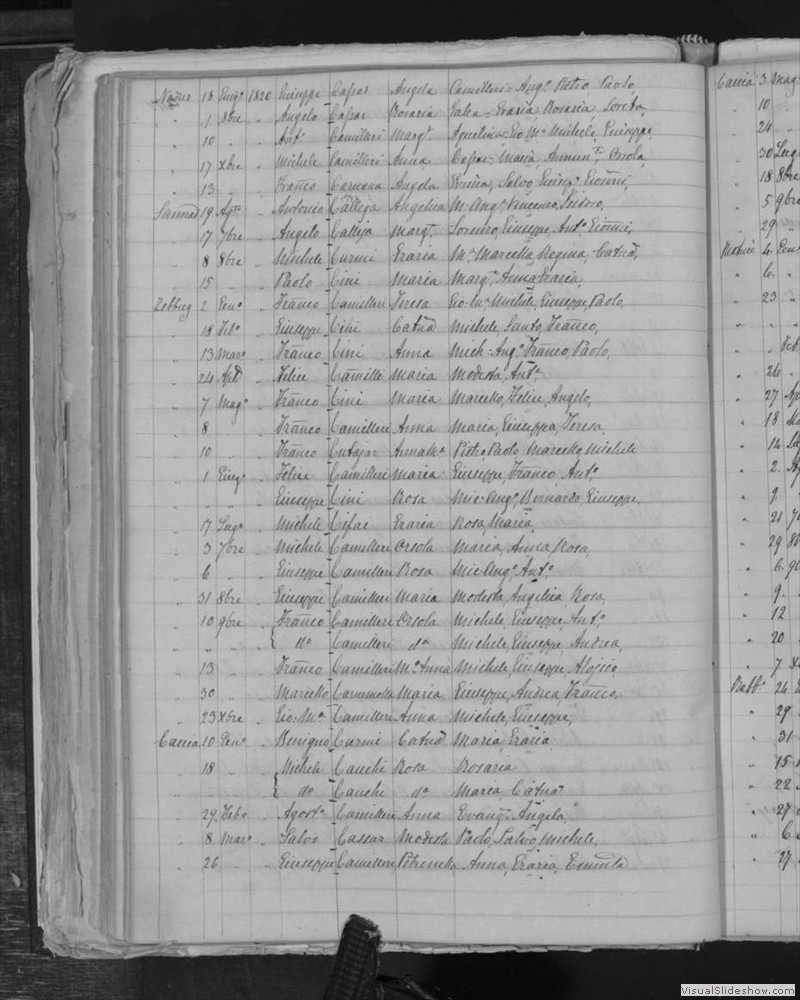 18 Giug.o 1820 Giuseppe Cassar Angela Camilleri - Ang.o Pietro Paolo,
" 1 8bre " Angelo Cassar Rosaria Galea - Grazia Rosaria Loreta,
" 10 " " Ant.o Camilleri Marg.ta Michele, Giuseppe,
" 17 Xbre " Michele Camilleri Anna Cassar - Maria Annun.ta, Orsola,
" 13 " " Franco Caruana Angela Salvo, Gius.e
19 Ag.to " Antonio Calleja Angelica M. Ang.o, Vincenzo, Isidoro,
" 17 7bre " Angelo Calleja Marg.ta Lorenzo, Giuseppe, Ant.o
" 8 8bre " Michele Curmi Grazia M.a Marcella, Regina, Catna,
" 15 " " Paolo Cini Maria Marg.ta Anna Grazia,
Zebbug 2 Gen.o " Franco Camilleri Teresa Gio: M.a Michele, Giuseppe, Paolo,
" 18 Feb.o " Giuseppe Cini Catna Michele, Santo, Franco,
" 13 Mar.o " Franco Cini Anna Mich - Ang.o Franco, Paolo,
" 24 Apl.e " Felice Camilli Maria Modesta, Ant.a
" 7 Mag.o " Franco Cini Maria Marcello, Felice, Angelo,
" 8 " " Franco Camilleri Anna Maria, Giuseppa, Teresa,
" 10 " " Franco Cutajar Anna M.a Pietro Paolo Marcello Michele
" 1 Giug.o " Felice Camilleri Maria Giuseppe, Franco, Ant.o
" " " " Giuseppe Cini Rosa Mic - Ang.o, Bernardo, Giuseppe,
" 17 Lug.o " Michele Cefai Grazia Rosa, Maria,
" 3 7bre " Michele Camilleri Orsola Maria, Anna, Rosa,
" 6 " " Giuseppe Camilleri Rosa Mic Ang.o, Ant.o
" 31 8bre " Giuseppe Camilleri Maria Modesta Angelica Rosa,
" 10 9bre " Franco Camilleri Orsola Michele, Giuseppe, Ant.o
" " " " { do Camilleri da Michele, Giuseppe, Andrea,
" 13 " " Franco Camilleri M.a Anna Michele, Giuseppe, Alojsio,
" 30 " " Marcello Maria Giuseppe, Andrea, Franco,
" 23 Xbre " Gio: M.a Camilleri Anna Michele, Giuseppe,
Caccia 10 Gen.o " Benigno Curmi Catna Maria, Grazia
" 18 " " Michele Cauchi Rosa Rosaria
" " " " { do Cauchi da Maria, Catna
" 29 Feb.o " Agost.o Camilleri Anna Evang.ta, Angela,
" 8 Mar.o " Salvo Cassar Modesta Paolo, Salvo, Michele,
" 26 " " Giuseppe Camilleri Petronilla Anna, Grazia,
Caccia 3 Mag.o
" 10
" 24
" 30 Lug
" 18 8bre
" 5 9bre
" 29
4 Gen
" 6
" 23
" " Feb
" 26
" 27 Ap
" 18
" 14
" 2
" 9
" 21
" 29
" 6
" 9
" 12
" 20
" 7
24
" 29
" 31
" 15
" 22
" 27
" 6
" 27
VisualSlideshow.com